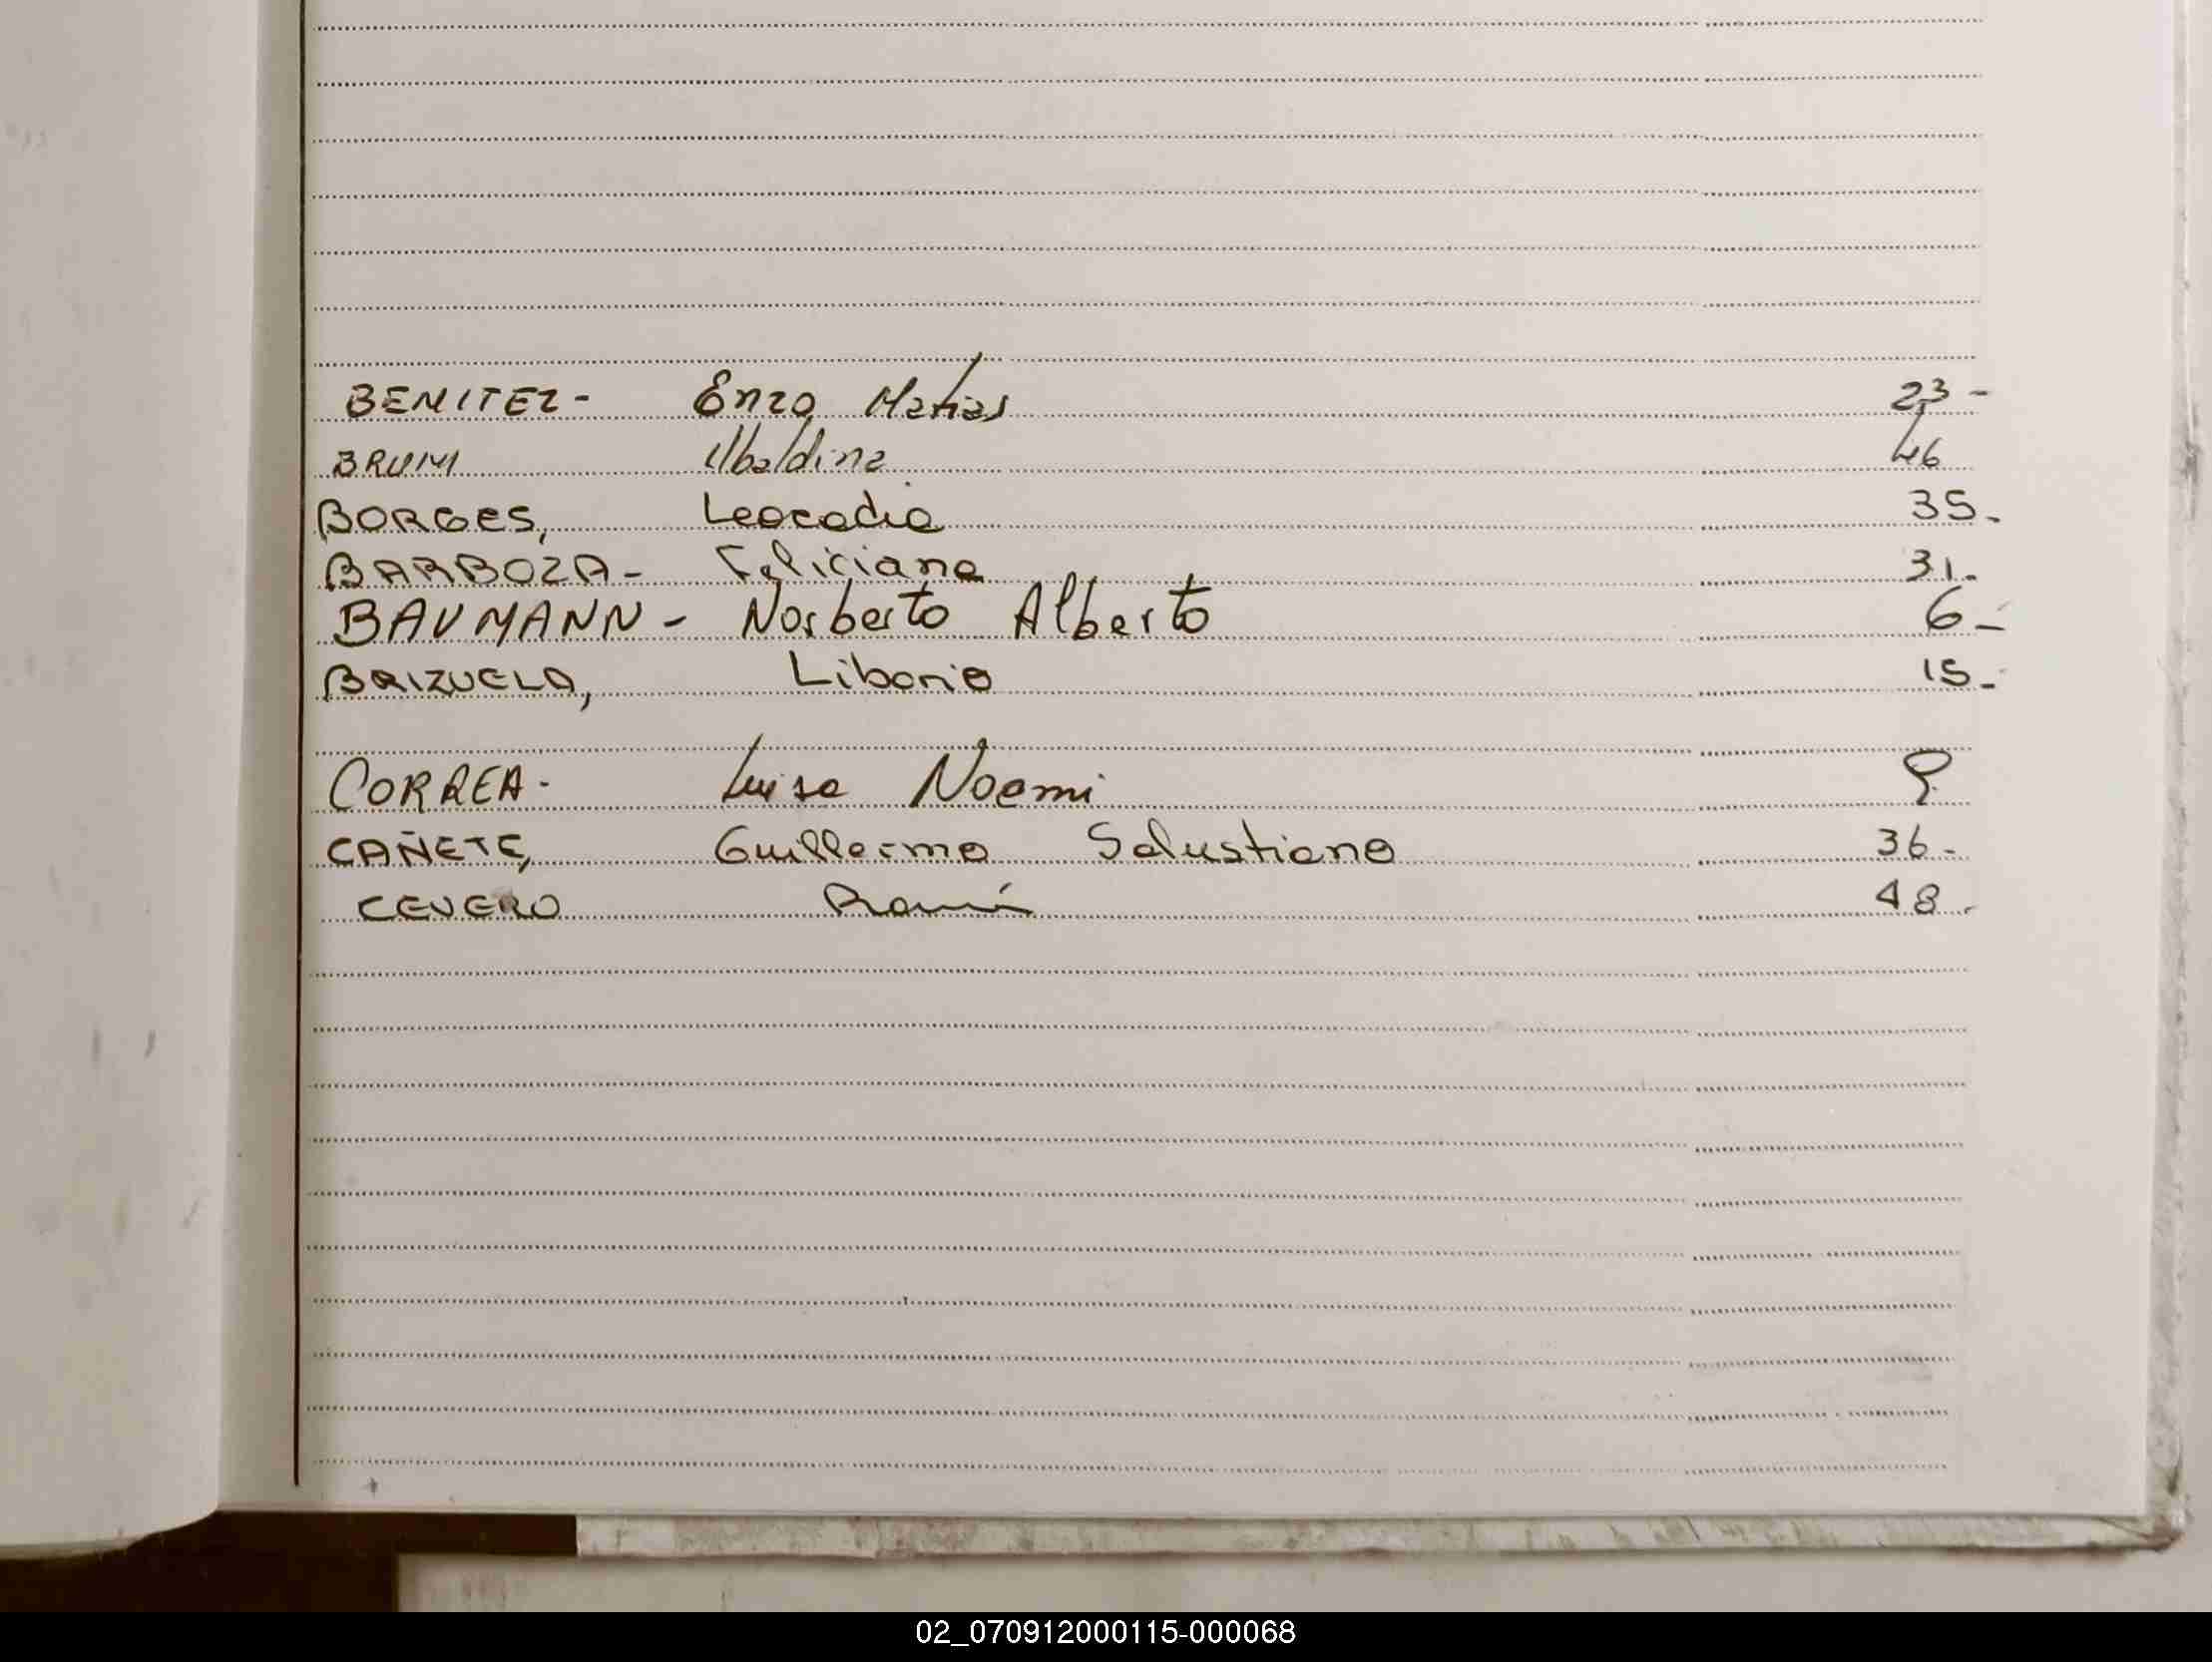 BENITEZ- Enzo Matias 23-
BRUM Ubaldina 46
BORGES, Leocadia 35-
BARBOZA- Feliciana 31-
BAUMANN- Norberto Alberto 6-
BRIZUELA, Liborio 15-
CORREA- Luisa Noemi 9
CAÑETE, Guillermo Salustiano 36-
CEVERO Ramón 48-
02_070912000115-000068